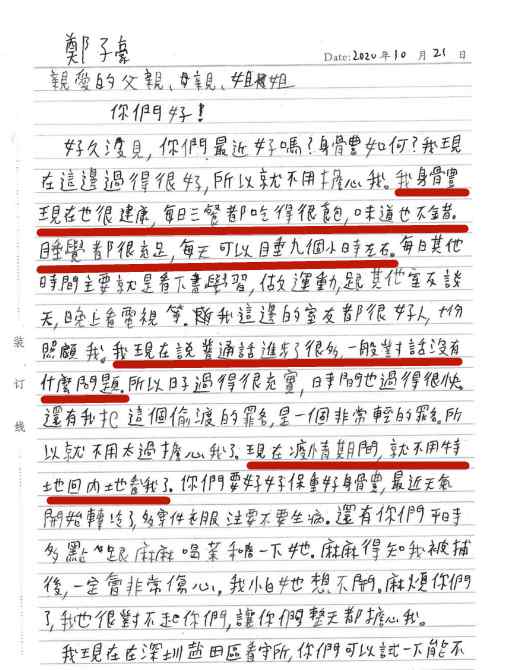 鄭子豪
Date: 2020 年 10 月 21 日
親愛的父親、母親、姐姐
你們好!
好久沒見,你們最近好嗎?身體如何?我現
在這邊過得很好,所以就不用擔心我。我身體
現在也很健康,每日三餐都吃得很飽,味道也不錯。
睡覺都很充足,每天可以睡九個小時左右。每日其他
時間主要就是看下書學習,做運動,跟其他室友談
天,晚上看電視等。我這邊的室友都很好人,十分
照顧我。我現在說普通話進步了很多,一般對話沒有
什麼問題。所以日子過得很充實,日時間也過得很快。
還有我犯這個偷渡的罪名,是一個非常輕的罪名。所
以就不用太過擔心我了。現在疫情期間,就不用特
地回內地看我了。你們要好好保重好身體,最近天氣
開始轉冷了,多穿件衣服注要不要生病。還有你們平時
多點跟麻麻喝茶和陪一下她。麻麻得知我被捕
後,一定會非常傷心。我小怕她想不開。麻煩你們
了,我也很對不起你們,讓你們整天都擔心我。
我現在在深圳鹽田區看守所,你們可以試一下能不
装
订
线